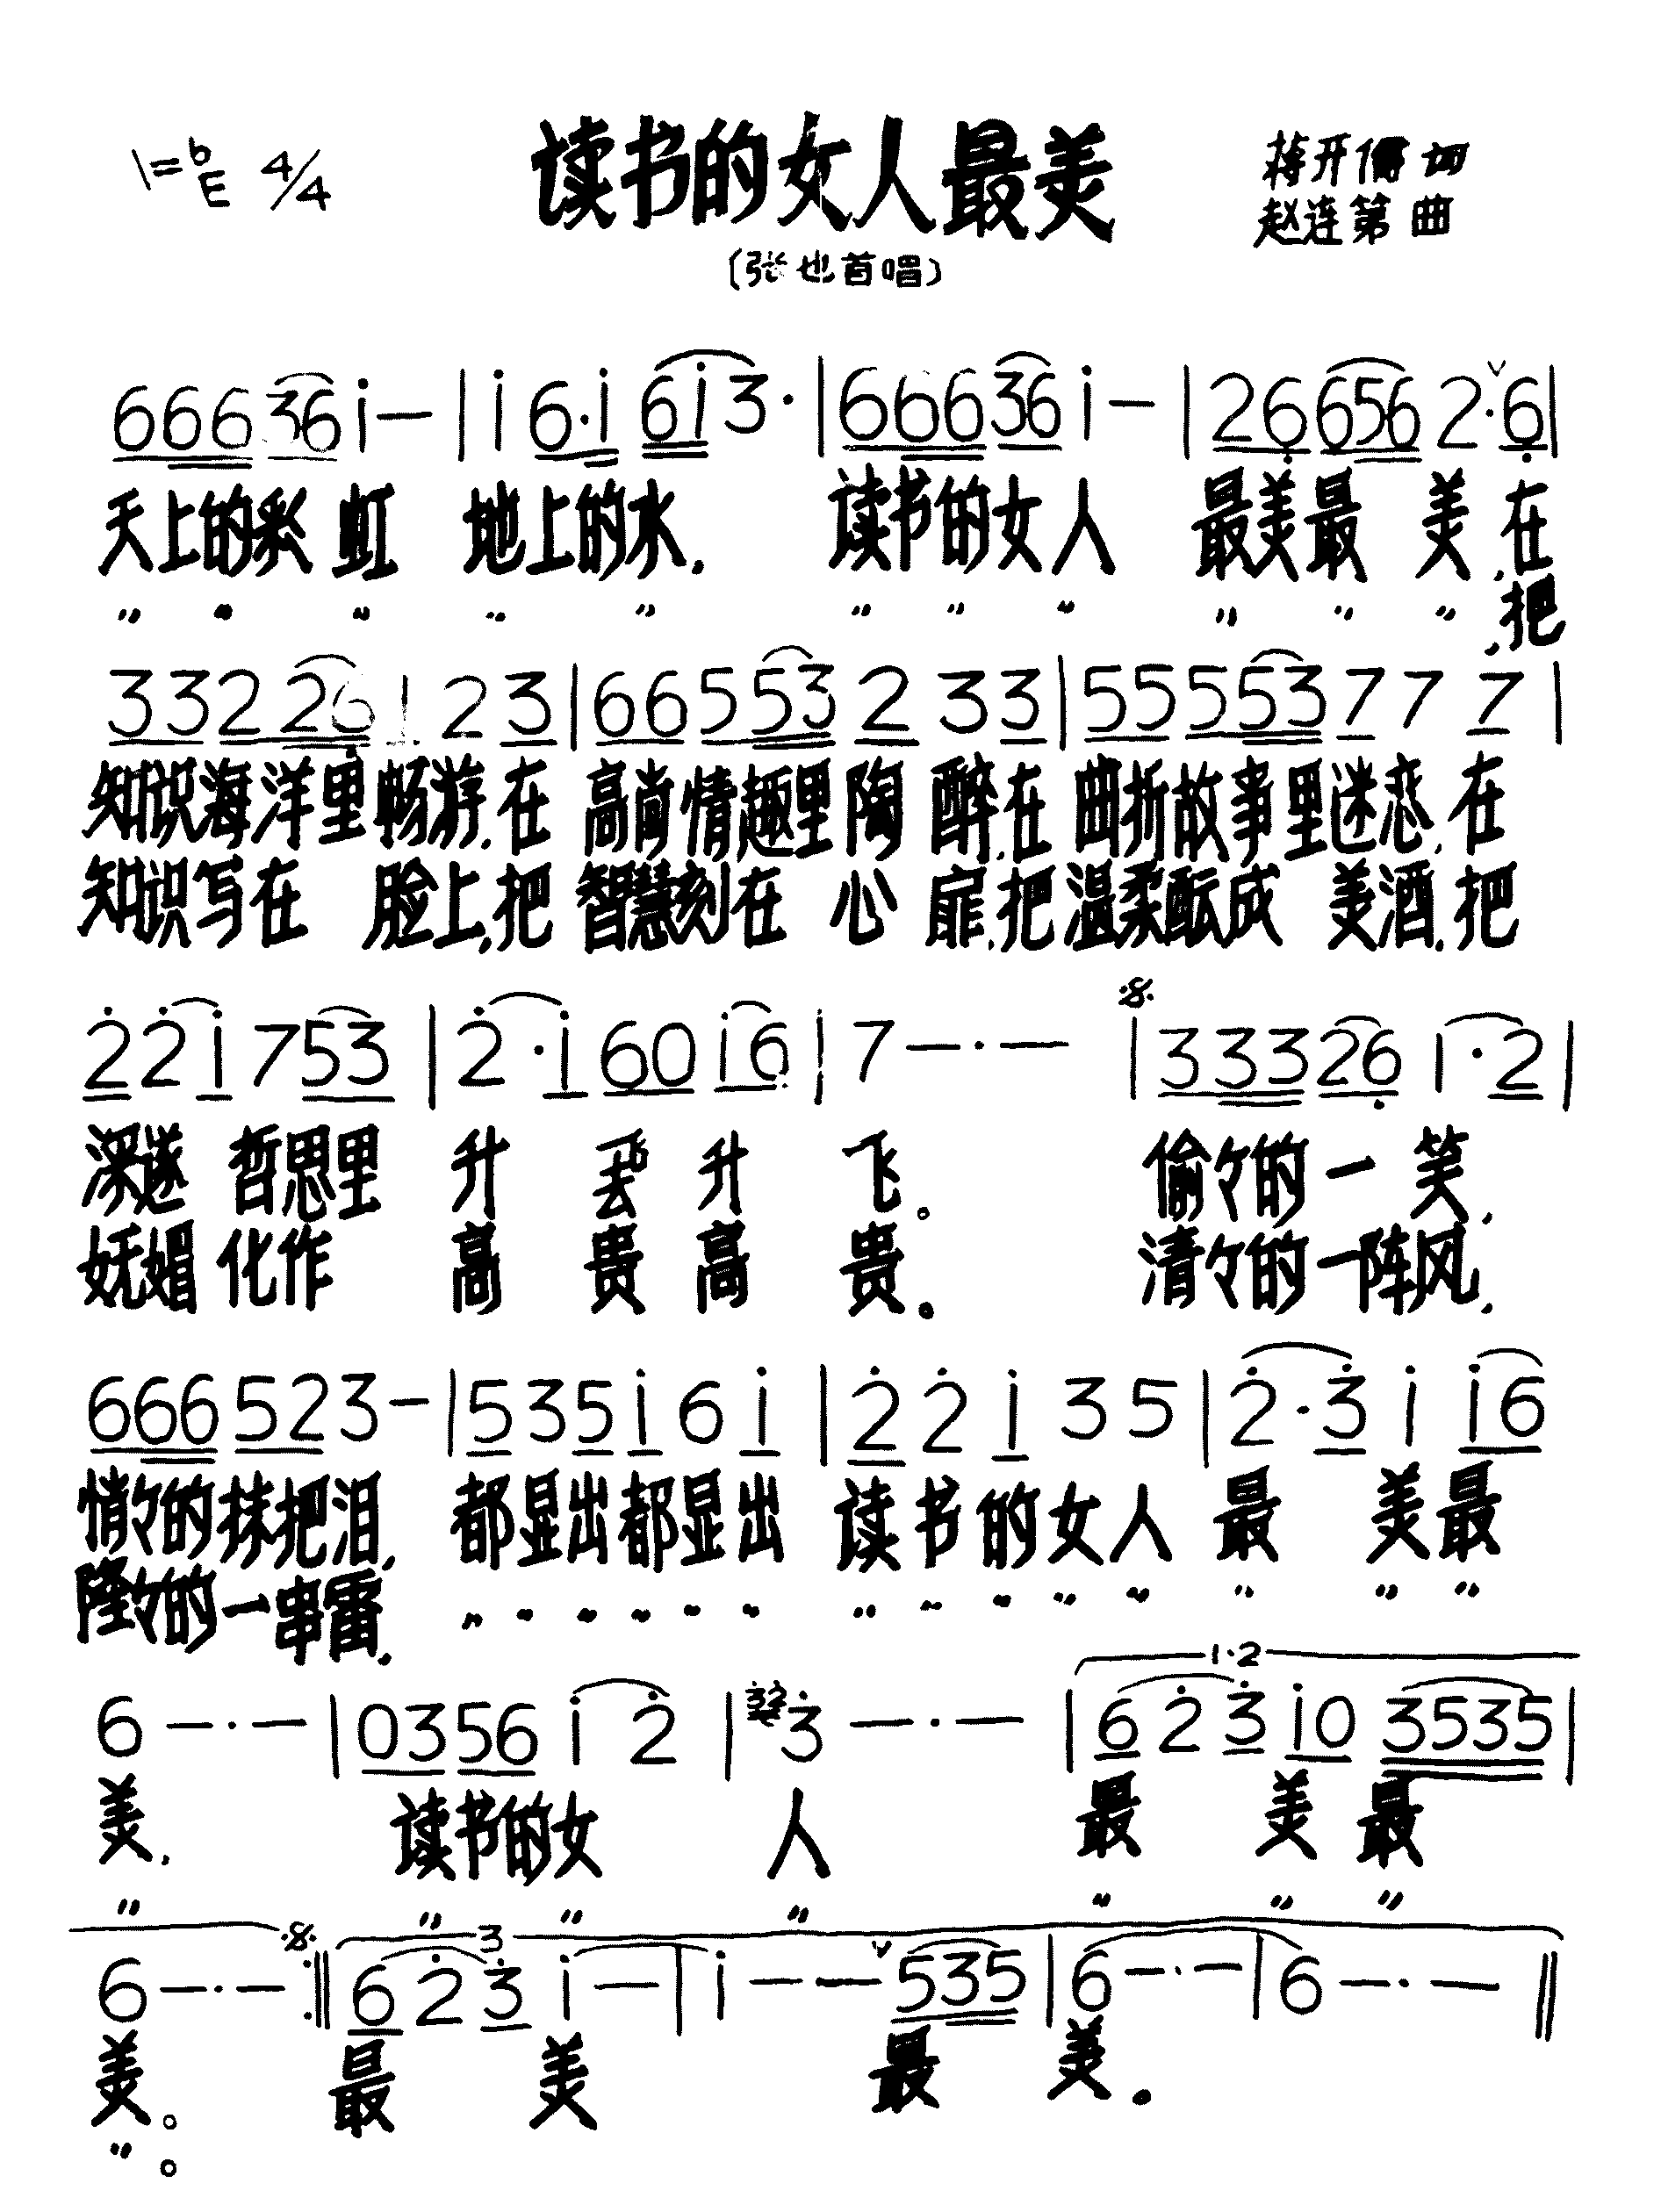 1=♭E 4/4 读书的女人最美 蒋开儒 词
赵连第 曲
(张也首唱)
6 6 6 3 6 i — | i 6 · i 6 i 3 · | 6 6 6 3 6 i — | 2 6 6 5 6 2 · 6 |
天上的彩虹 地上的水. 读书的女人 最美最美, 在
〃 〃 〃 〃 〃 〃 〃 〃 〃 〃 〃, 把
3 3 2 2 6 1 2 3 | 6 6 5 5 3 2 3 3 | 5 5 5 5 3 7 7 7 |
知识海洋里畅游, 在高尚情趣里陶醉, 在曲折故事里迷恋, 在
知识写在 脸上, 把智慧刻在心扉, 把温柔酝成美酒, 把
2 2 i 7 5 3 | 2 · i 6 0 i 6 | 7 — · — | 3 3 3 2 6 1 · 2 |
深邃 哲思里 升 去 升 飞。 偷々的一笑,
妩媚 化作 高 贵 高 贵。 清々的一阵风,
6 6 6 5 2 3 — | 5 3 5 i 6 i | 2 2 i 3 5 | 2 · 3 i i 6
悄々的抹把泪, 都显出都显出 读书的女人最 美最
隆々的一串雷, 〃 〃 〃 〃 〃 〃 〃 〃 〃 〃 〃 〃 〃 〃
1·2
6 — · — | 0 3 5 6 i 2 | 3 — · — | 6 2 3 i 0 3 5 3 5 |
美. 读书的女 人 最 美 最
〃 〃 〃 〃 〃 〃 〃
3
6 — · — :‖ 6 2 3 i — | i — — 5 3 5 | 6 — · — | 6 — · — ‖
美。 最 美 最 美.
〃 。